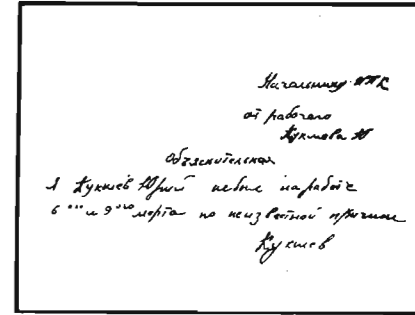 Начальнику ЦПК
от рабочего
Кукшева Ю
Объяснительная
Я Кукшев Юрий небыл на работе
6ого и 9ого марта по неизвестной причине
Кукшев